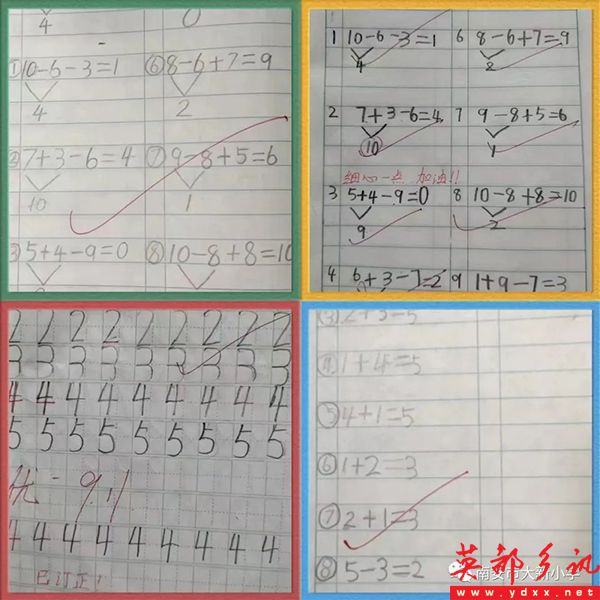 4
0
①10-6-3=1 ⑥8-6+7=9
4 2
②7+3-6=4 ⑦9-8+5=6
10 1
③5+4-9=0 ⑧10-8+8=10
1 10-6-3=1 6 8-6+7=9
4 2
2 7+3-6=4 7 9-8+5=6
10 1
细心一点 加油!!
3 5+4-9=0 8 10-8+8=10
9 2
4 6+3-7=2 9 1+9-7=3
2 2 2 2 2 2 2 2 2
3 3 3 3 3 3 3 3 3
4 4 4 4 4 4 4 4 4 4
5 5 5 5 5 5 5 5 5
优- 9.11
4 4 4 4 4 4 4 4 4
已订正!
③2+3=5
④1+4=5
⑤4+1=5
⑥1+2=3
⑦2+1=3
⑧5-3=2
南安市大新小学
英都乡讯
www.ydxx.net